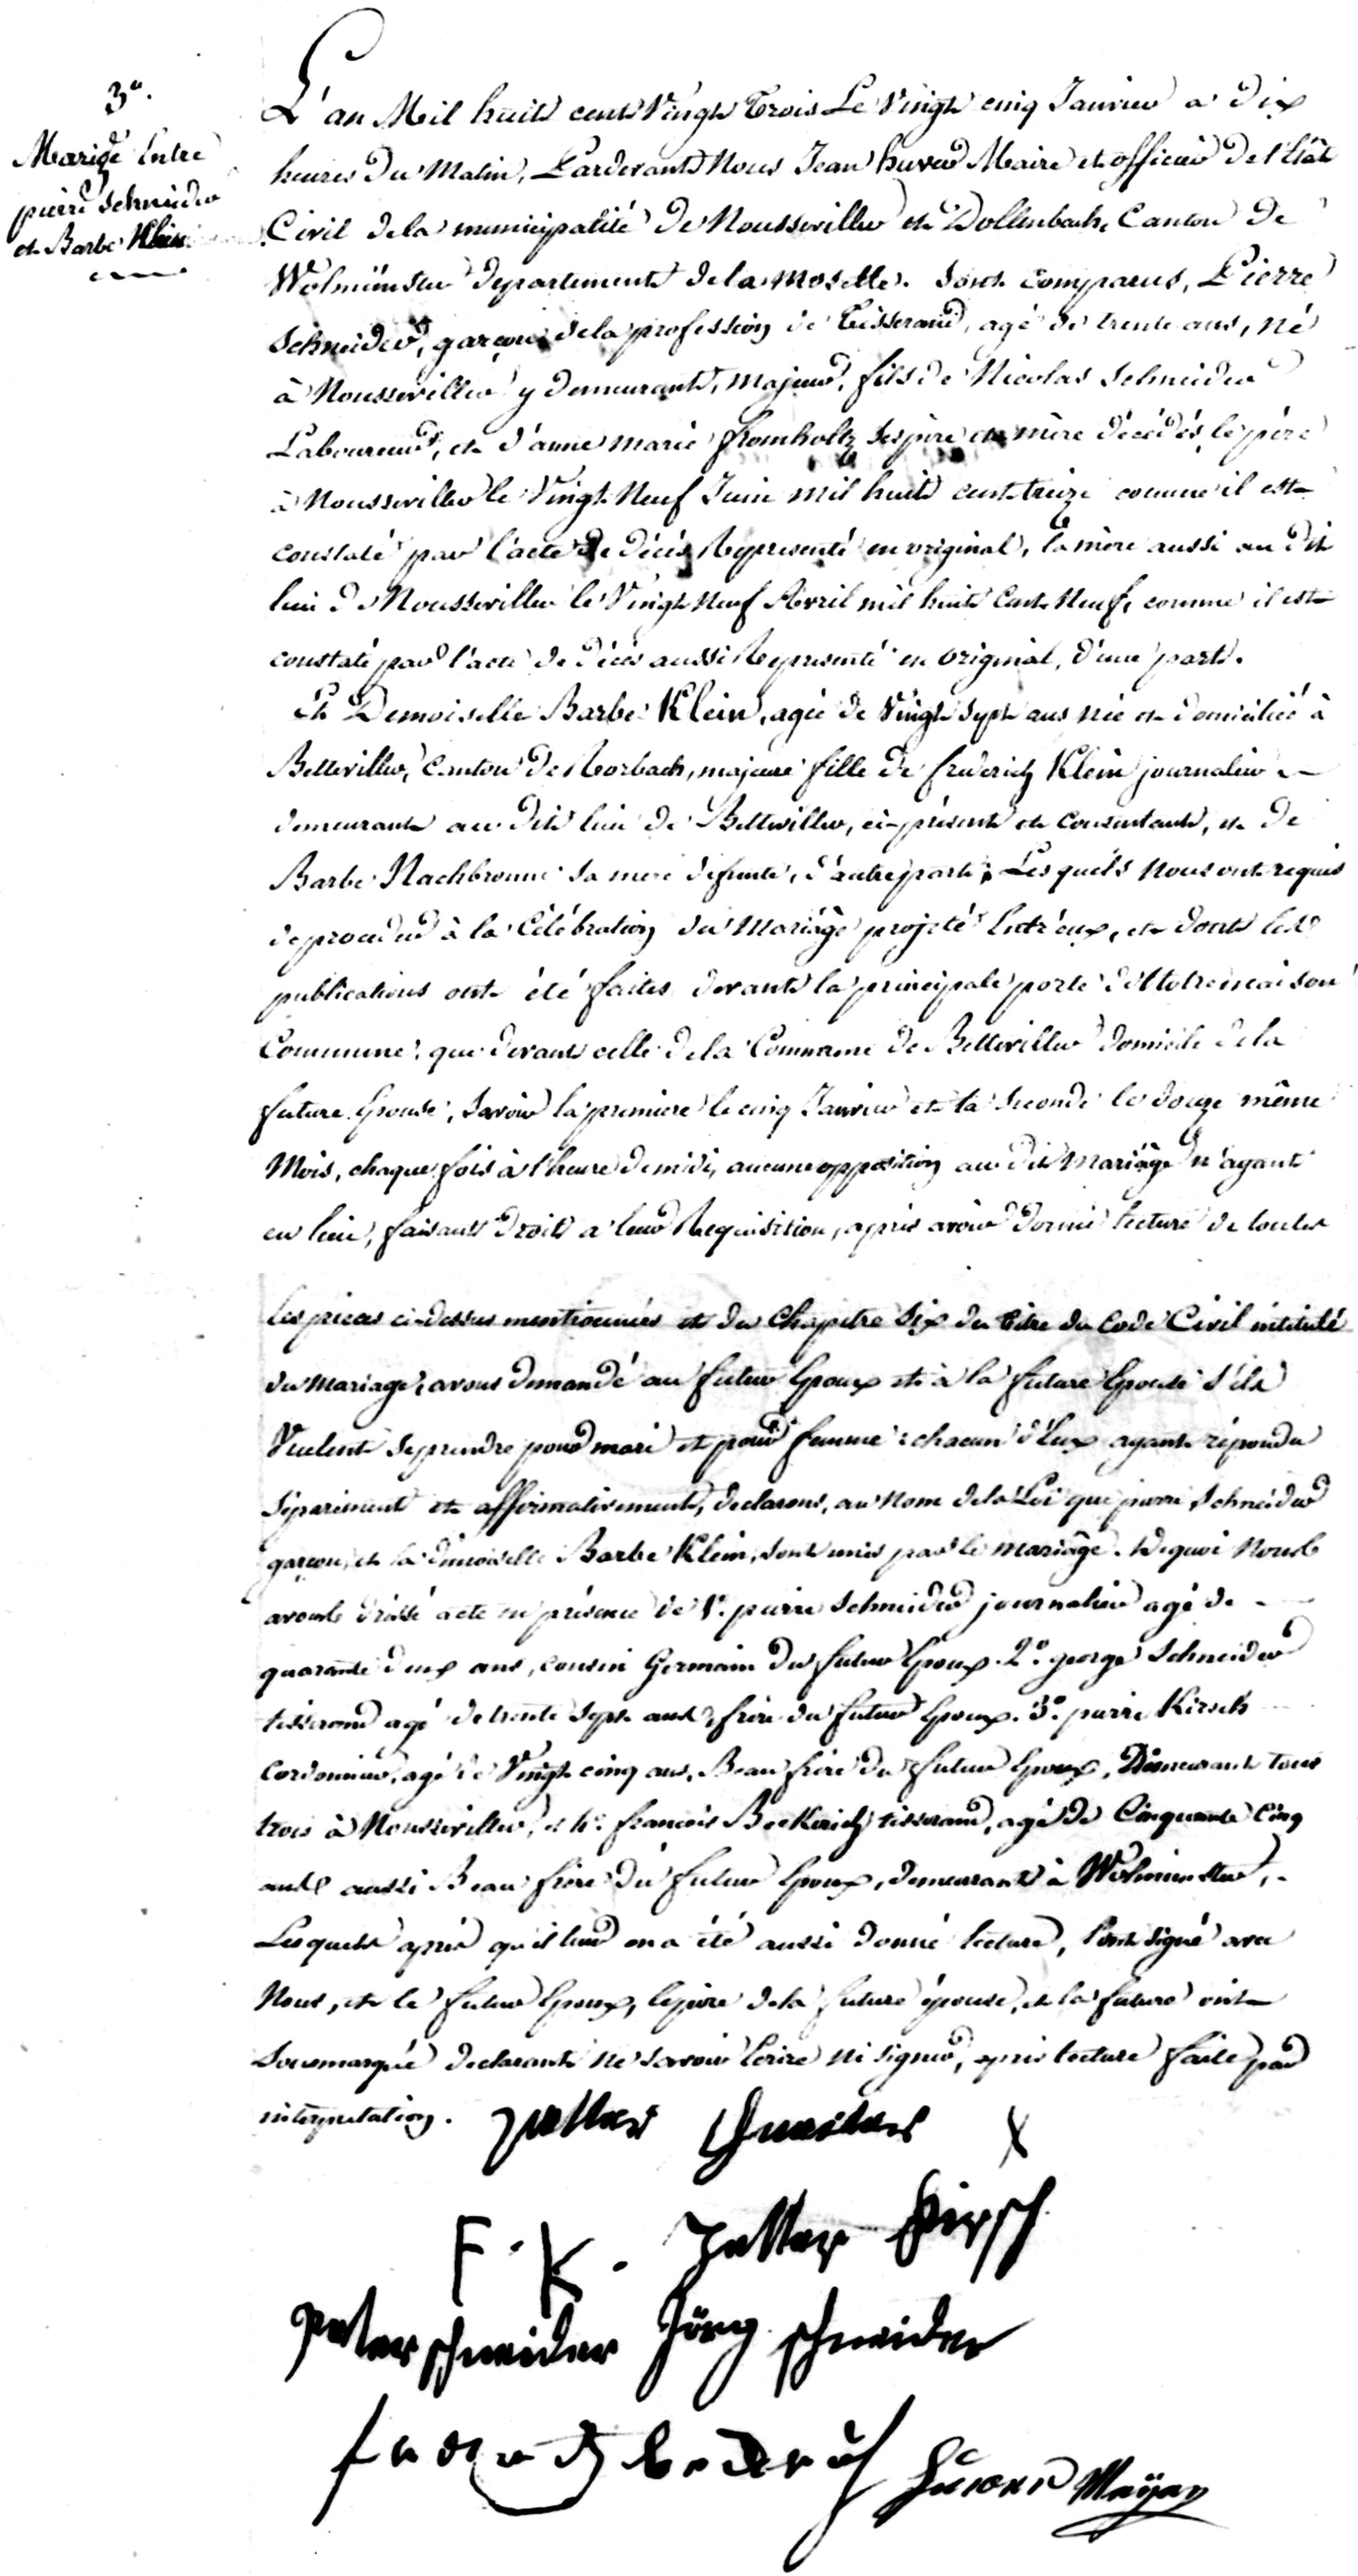 3e.
Mariage Entre
pierre Schneider
et Barbe Klein
L'an Mil huit cent Vingt Trois Le Vingt cinq Janvier a dix
heures du Matin, Pardevant Nous Jean huver Maire et officier de l'Etât
Civil de la municipalité de Nousseviller et Dollenbach, Canton de
Wolmünster departement de la Moselle. Sont comparus, Pierre
Schneider, garçon, de la profession de Tisserand, agé de trente ans, né
à Nousseviller y demeurant, majeur, fils de Nicolas Schneider
Laboureur, et d'anne marie fromholtz ses père et mère décédés, le père
à Nousseviller le Vingt Neuf Juin mil huit cent treize comme il est
constaté par l'acte de décès Représenté en original, la mère aussi au dit
lieu de Nousseviller le Vingt Neuf Avril mil huit Cent Neuf, comme il est
constaté par l'acte de décès aussi Représenté en Original, d'une part.
Et Demoiselle Barbe Klein, agée de Vingt Sept ans née et domiciliée à
Betteviller, Canton de Rorbach, majeure fille de friderich Klein journalier
demeurant au dit lieu de Bettviller, ci-présent et Consentant, et de
Barbe Nachbronne sa mere defunte, d'autre part; Lesquels Nous ont requis
de proceder à la Célébration du Mariâge projeté Entr'eux, et dont les
publications ont été faites devant la principale porte de Notre maison
Commune, que devant celle de la Commune de Betteviller domicile de la
future Epouse, Savoir la premiere le cinq Janvier et la Seconde le douze même
Mois, chaque fois à l'heure de midi, aucune opposition au dit Mariâge n'ayant
eu lieu, faisant droit a leur Requisition, après avoir donné lecture de toutes
les pieces ci-dessus mentionnées et du Chapitre Six du Titre du Code Civil intitulé
du Mariage, avons demandé au futur Epoux et à la future Epouse s'ils
Veulent se prendre pour mari et pour femme: chacun d'Eux ayant répondu
séparément et affirmativement, declarons, au Nom de la Loi que pierre Schneider
garçon, et la demoiselle Barbe Klein, sont unis par le mariâge. de quoi Nous
avons dréssé acte en présence de 1o. pierre Schneider journalier agé de
quarante deux ans, cousin Germain du futur Epoux. 2o. george Schneider
tisserand agé de trente Sept ans, frère du futur Epoux. 3o. pierre Kirsch
Cordonnier, agé de Vingt cinq ans, Beau frère du futur Epoux, Demeurant tous
trois à Nousseviller, et 4o. francois Beckerich tisserand, agé de Cinquante Cinq
ans aussi Beau frère du futur Epoux, demeurant à Wolmunster,
Lesquels après qu'il leur en a été aussi donné lecture, l'ont signé avec
Nous, et le futur Epoux, le père de la future épouse, et la future ont
Sousmarqué declarant ne savoir Ecrire ni signer, après lecture faite par
interpretation. Petter Schneider X
F. K. Petter Kirsch
Peter Schneider Jörg Schneider
Huver Mayer